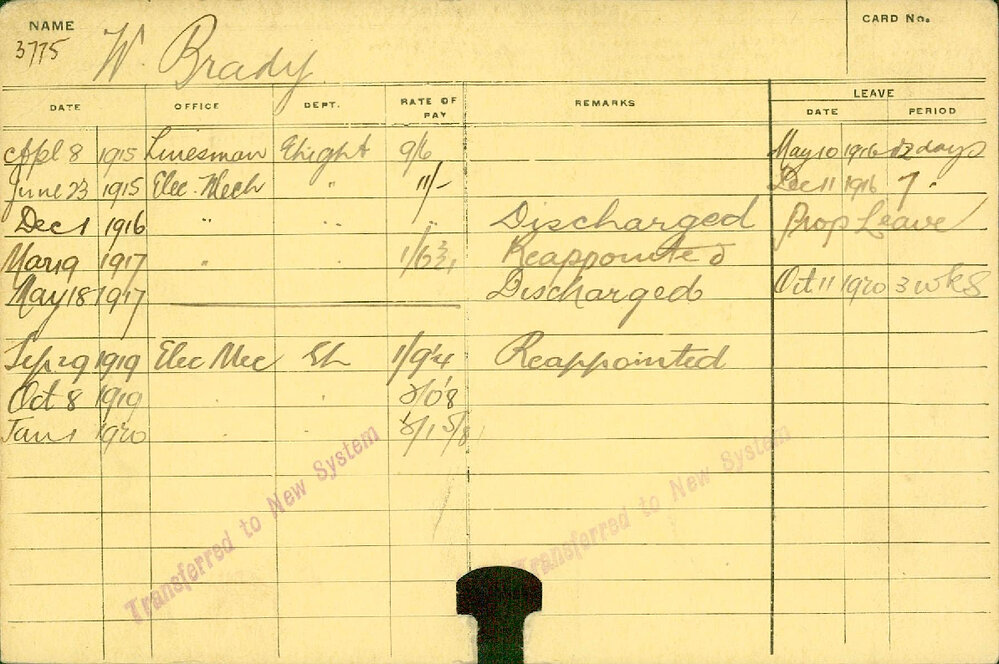 NAME
CARD No.
3775 W. Brady
LEAVE
DATE OFFICE DEPT. RATE OF PAY REMARKS DATE PERIOD
Apl 8 1915 Linesman Elight 9/6 May 10 1916 12 days
June 23 1915 Elec. Mech " 11/- Dec 11 1916 7 "
Dec 1 1916 " " " Discharged Prop Leave
Mar 19 1917 " Reappointed
May 18 1917 Discharged Oct 11 1920 3 wks
Sep 29 1919 Elec Mec El 1/9¼ Reappointed
Oct 8 1919 " "
Jan 1 1920 " "
Transferred to New System
Transferred to New System